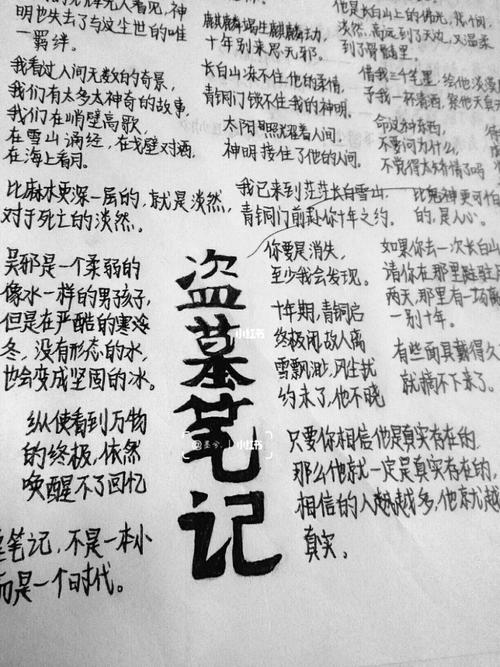 明也失去了与这尘世的唯
一羁绊。
我看过人间无数的奇景,
我们有太多太神奇的故事。
我们在峭壁高歌,
在雪山诵经,在戈壁对酒,
在海上看月。
比麻木更深一层的,就是淡然,
对于死亡的淡然。
吴邪是一个柔弱的
像水一样的男孩子,
但是在严酷的寒冷
冬,没有形态的水,
也会变成坚固的冰。
纵使看到万物
的终极,依然
唤醒不了回忆
笔记,不是一本小
而是一个时代。
麒麟竭生麒麟劫,
十年别来思无邪。
长白山冻不住他的柔情,
青铜门锁不住我的神明。
太阳照耀着人间,
神明接住了他的人间。
我已来到茫茫长白雪山,
青铜门前赴你十年之约。
你要是消失,
至少我会发现。
十年期,青铜启
终极闭,故人离
雪飘渺,风尘扰
约末了,他不晓
盗墓笔记
小红书
小红书
只要你相信他是真实存在的,
那么他就一定是真实存在的,
相信的人越越多,他就越
真实。
到了骨髓里。
借我三千笔墨,
命这种东西,
不要问为什么,
比鬼神更可怕
的,是人心。
如果你去一次长白山
请你在那里驻驻
两天,那里有一场
一别十年。
有些面具戴得久了
就摘不下来了。